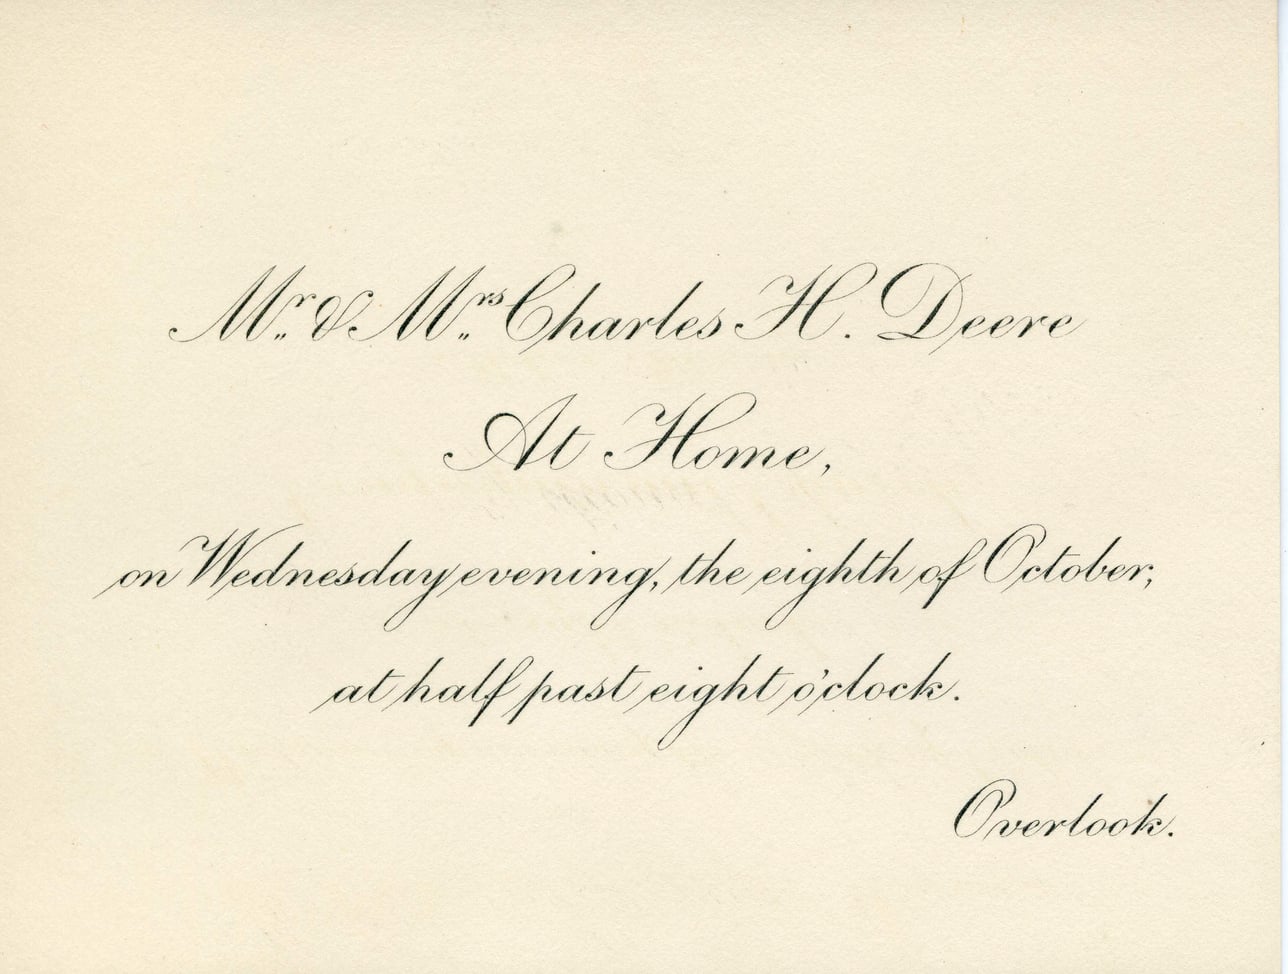 Mr. & Mrs. Charles H. Deere
At Home,
on Wednesday evening, the eighth of October,
at half past eight o'clock.
Overlook.